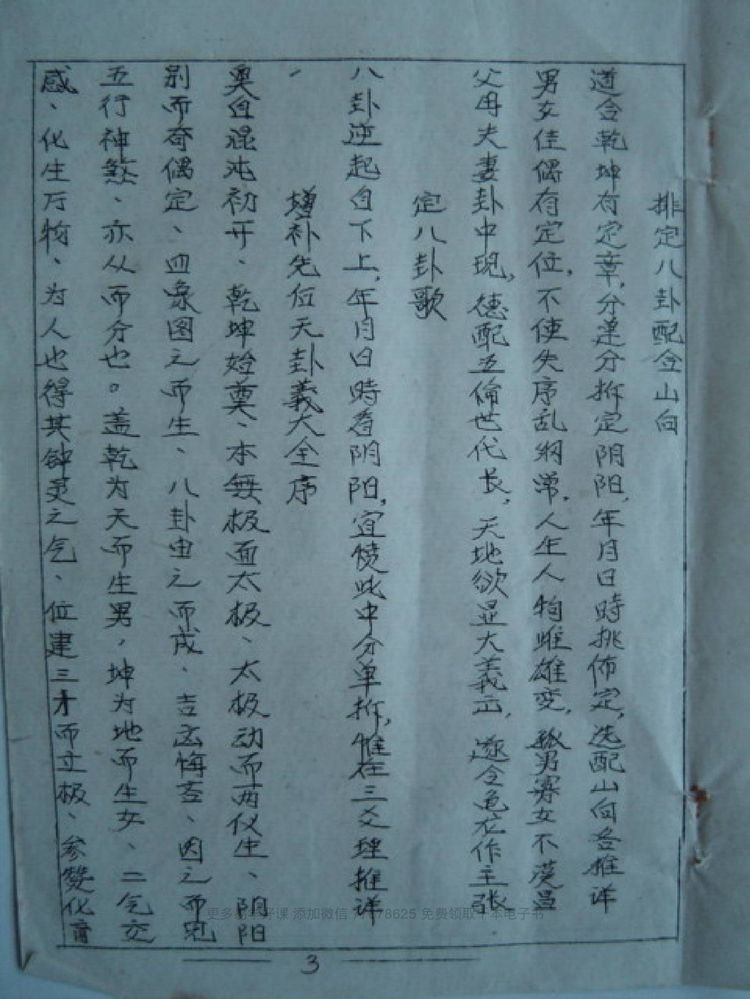 排定八卦配合山向
道合乾坤有定章,分连分拆定阴阳,年月日時排佈定,选配山向各推详
男女佳偶有定位,不使失序乱纲常,人生人物雌雄变,孤男寡女不
父母夫妻卦中现,德配五倫世代长,天地欲显大義正,遂令龟作主张
定八卦歌
八卦逆起自下上,年月日時看阴阳,宜憑此中分单拆,惟在三爻理推详
增补先后天卦義大全序
奥自混沌初开、乾坤始奠、本無极而太极、太极动而两仪生、阴阳
别而奇偶定、四象图之而生、八卦由之而成、吉凶悔吝、因之而见
五行神煞、亦从而分也。盖乾为天而生男,坤为地而生女、二气交
感、化生万物、为人也得其钟灵之气、位建三才而立极、参贊化育
更多 课 添加微信 78625 免费领取 本电子书
3